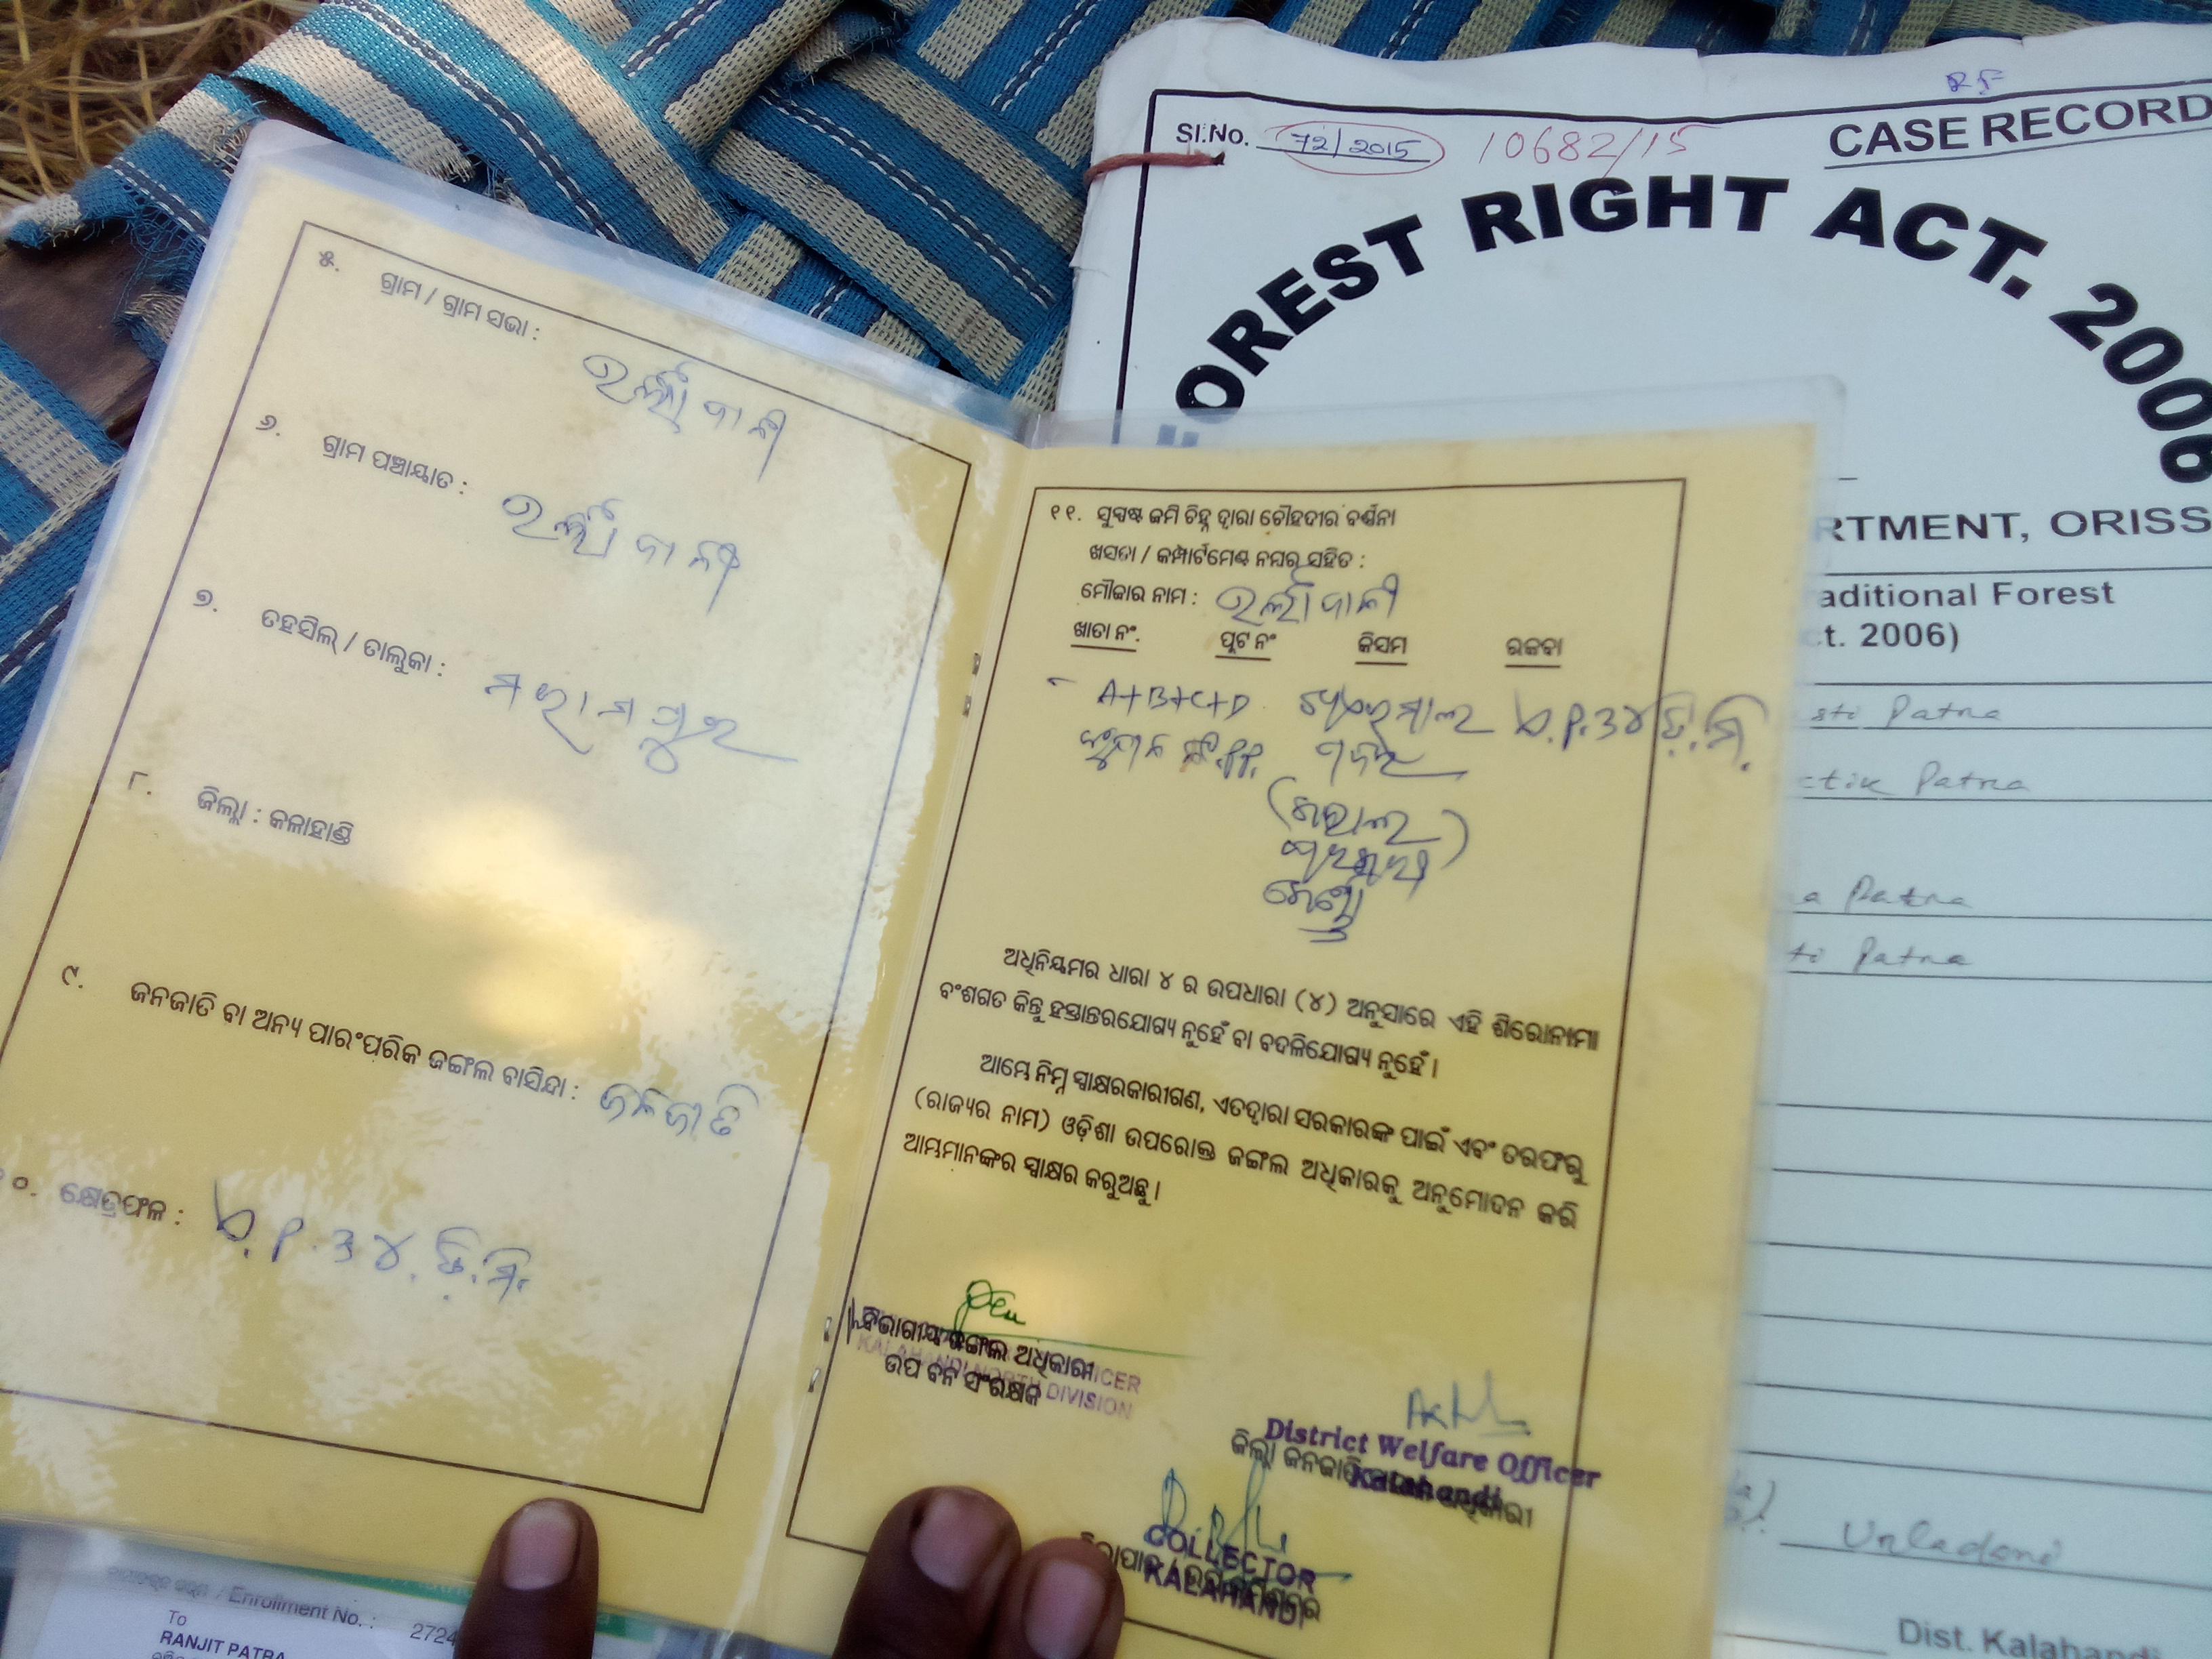 ୫. ଗ୍ରାମ / ଗ୍ରାମ ସଭା : ଉର୍ଲାଦାନୀ
୬. ଗ୍ରାମ ପଞ୍ଚାୟାତ : ଉର୍ଲାଦାନୀ
୭. ତହସିଲ୍ / ତାଲୁକା :
୮. ଜିଲ୍ଲା : କଳାହାଣ୍ଡି
୯. ଜନଜାତି ବା ଅନ୍ୟ ପାରଂପରିକ ଜଙ୍ଗଲ ବାସିନ୍ଦା : ଜନଜାତି
୧୦. କ୍ଷେତ୍ରଫଳ :
୧୧. ସୁସ୍ପଷ୍ଟ ଜମି ଚିହ୍ନ ଦ୍ୱାରା ଚୌହଦୀର ବର୍ଣ୍ଣନା
ଖସଡା / କମ୍ପାର୍ଟମେଣ୍ଟ ନମ୍ବର ସହିତ :
ମୌଜାର ନାମ : ଉର୍ଲାଦାନୀ
ଖାତା ନଂ. ପ୍ଲଟ ନଂ କିସମ ରକବା
A+B+C+D
ଅଧିନିୟମର ଧାରା ୪ ର ଉପଧାରା (୪) ଅନୁସାରେ ଏହି ଶିରୋନାମା
ବଂଶଗତ କିନ୍ତୁ ହସ୍ତାନ୍ତରଯୋଗ୍ୟ ନୁହେଁ ବା ବଦଳିଯୋଗ୍ୟ ନୁହେଁ ।
ଆମ୍ଭେ ନିମ୍ନ ସ୍ୱାକ୍ଷରକାରୀଗଣ, ଏତଦ୍ୱାରା ସରକାରଙ୍କ ପାଇଁ ଏବଂ ତରଫରୁ
(ରାଜ୍ୟର ନାମ) ଓଡ଼ିଶା ଉପରୋକ୍ତ ଜଙ୍ଗଲ ଅଧିକାରକୁ ଅନୁମୋଦନ କରି
ଆମ୍ଭମାନଙ୍କର ସ୍ୱାକ୍ଷର କରୁଅଛୁ ।
ବିଭାଗୀୟ ଜଙ୍ଗଲ ଅଧିକାରୀ
KALAHANDI NORTH DIVISION
ଉପ ବନ ସଂରକ୍ଷକ
District Welfare Officer
Kalahandi
COLLECTOR
KALAHANDI
Enrollment No. : 2724
To
RANJIT PATRA
R.F
Sl.No. 72/2015 10682/15
CASE RECORD
FOREST RIGHT ACT. 2006
RTMENT, ORISS
aditional Forest
ct. 2006)
sti Patra
ctik Patra
a Patra
ti Patra
Urladani
Dist. Kalahandi